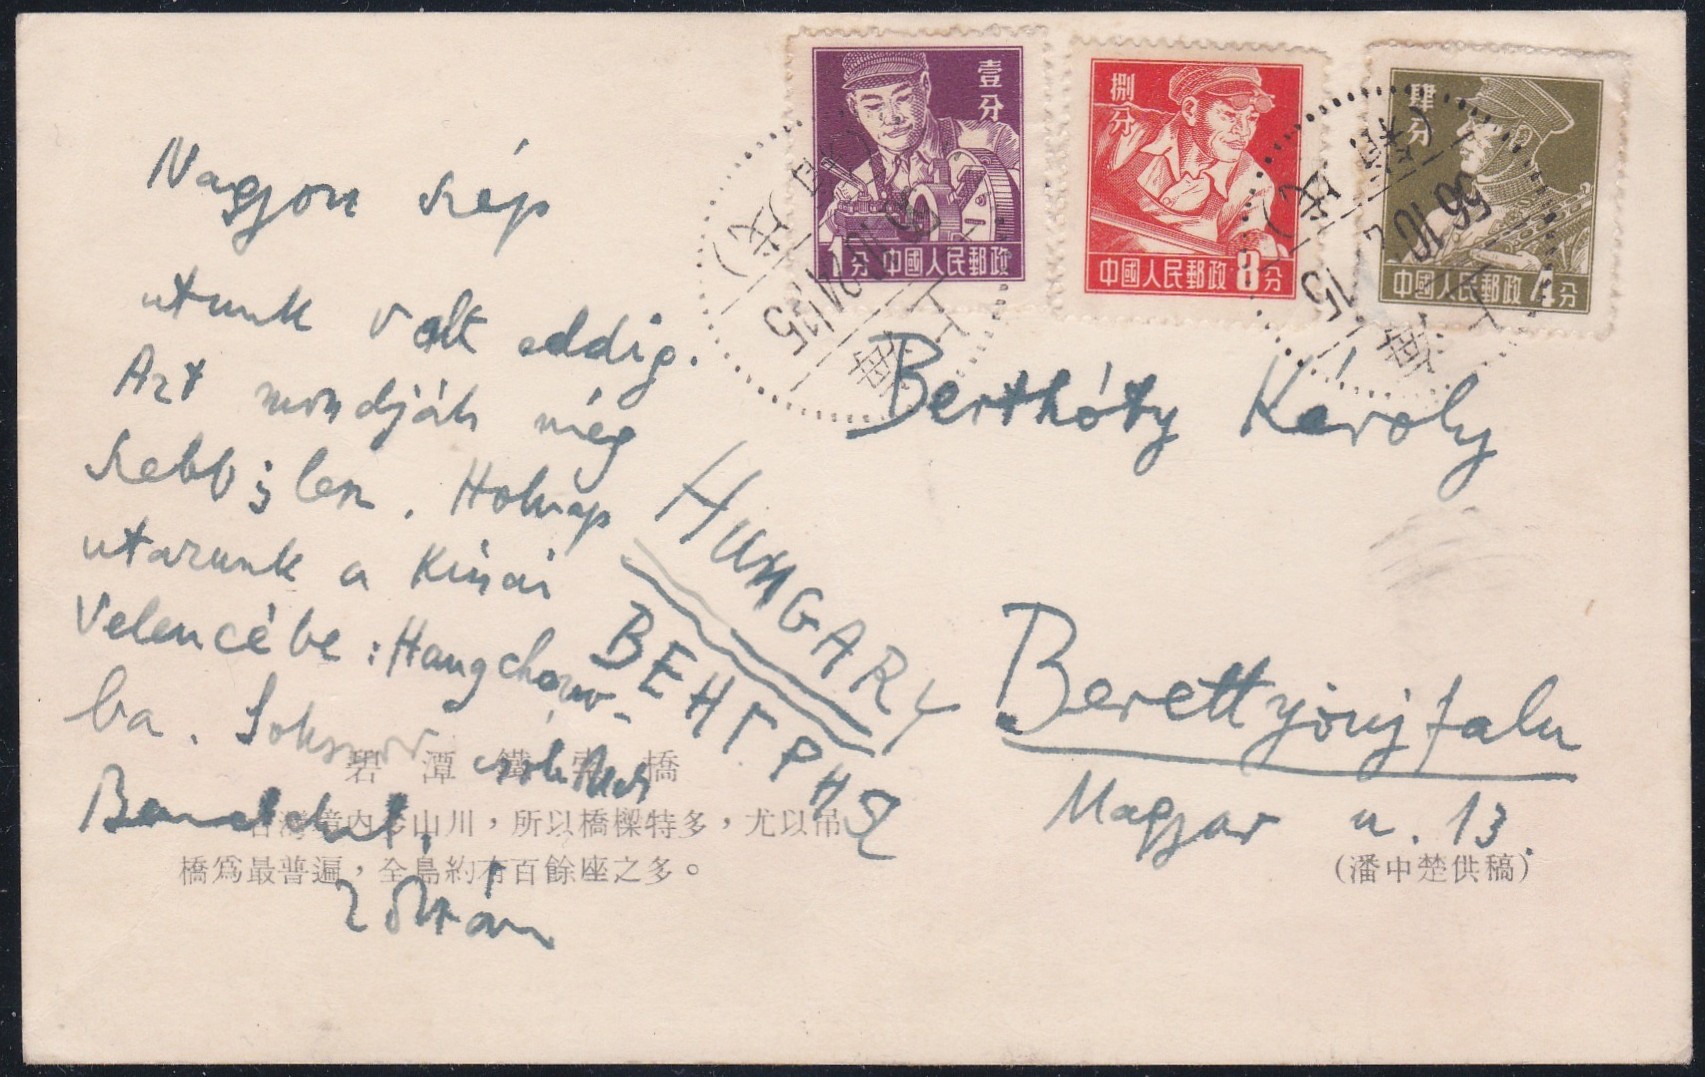 壹分
1分 中國人民郵政
捌分
中國人民郵政 8分
肆分
中國人民郵政 4分
上海
上海
56.10.
15
Nagyon szép
utunk volt eddig.
Azt mondják még
szebb is lesz. Holnap
utazunk a kínai
Velencébe: Hangchow-
ba. Sokszor
Benneteket.
Zoltán
HUNGARY
ВЕНГРИЯ
Bertháty Károly
Berettyóújfalu
Magyar u. 13.
碧潭鐵索橋
台灣境內多山川，所以橋樑特多，尤以吊
橋爲最普遍，全島約有百餘座之多。
(潘中楚供稿)